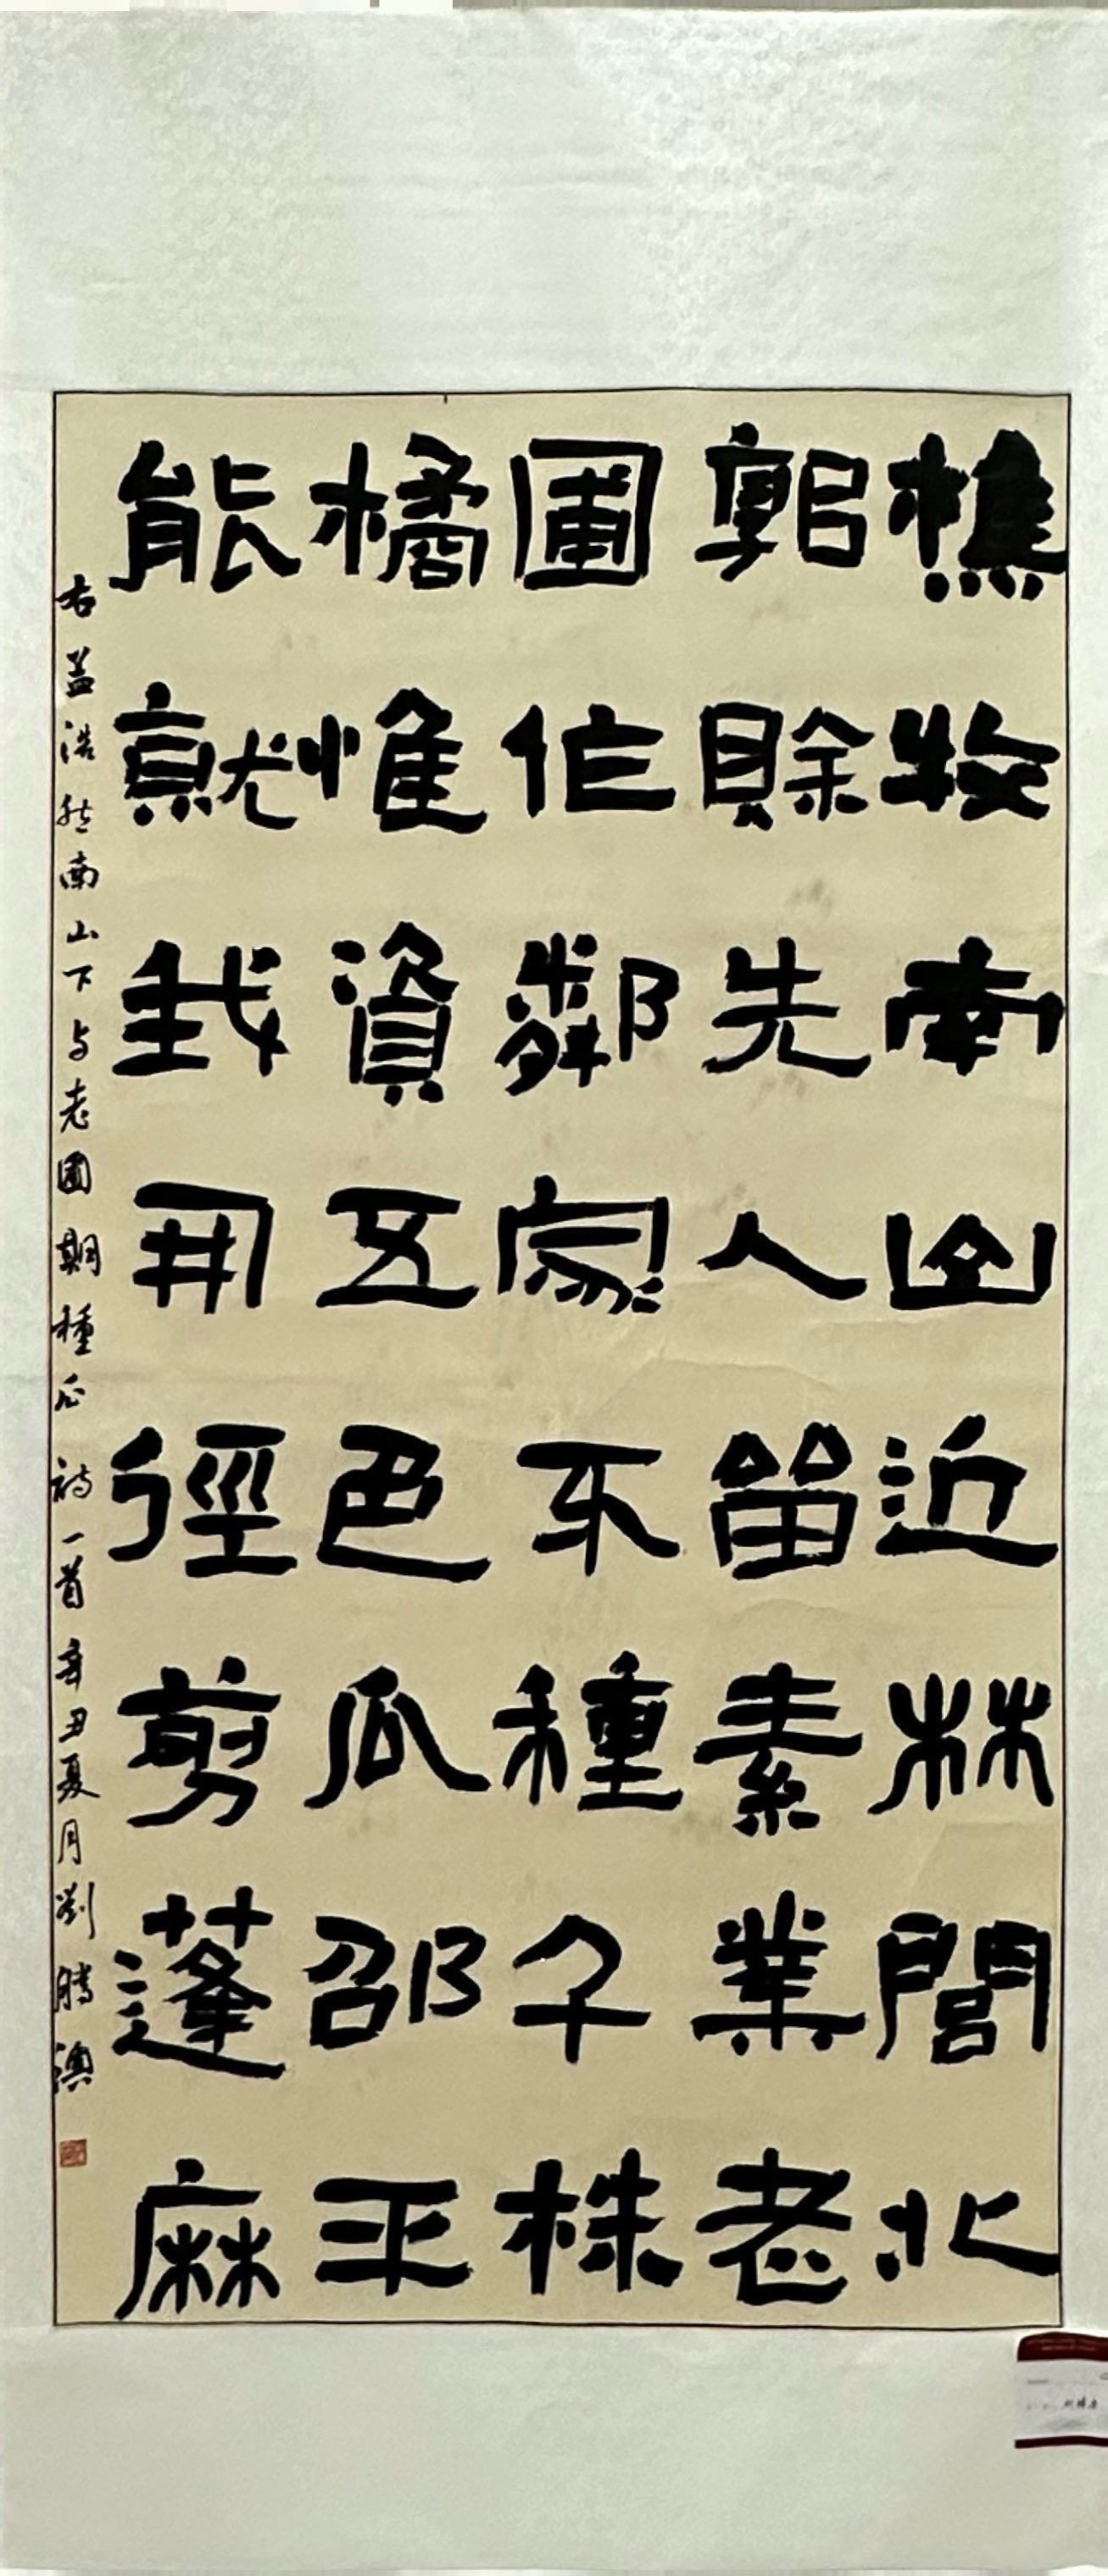 樵牧南山近林閭北
郭賒先人留素業老
圃作鄰家不種千株
橘惟資五色瓜邵平
能就我開徑剪蓬麻
右孟浩然南山下与老圃期種瓜詩一首辛丑夏月劉